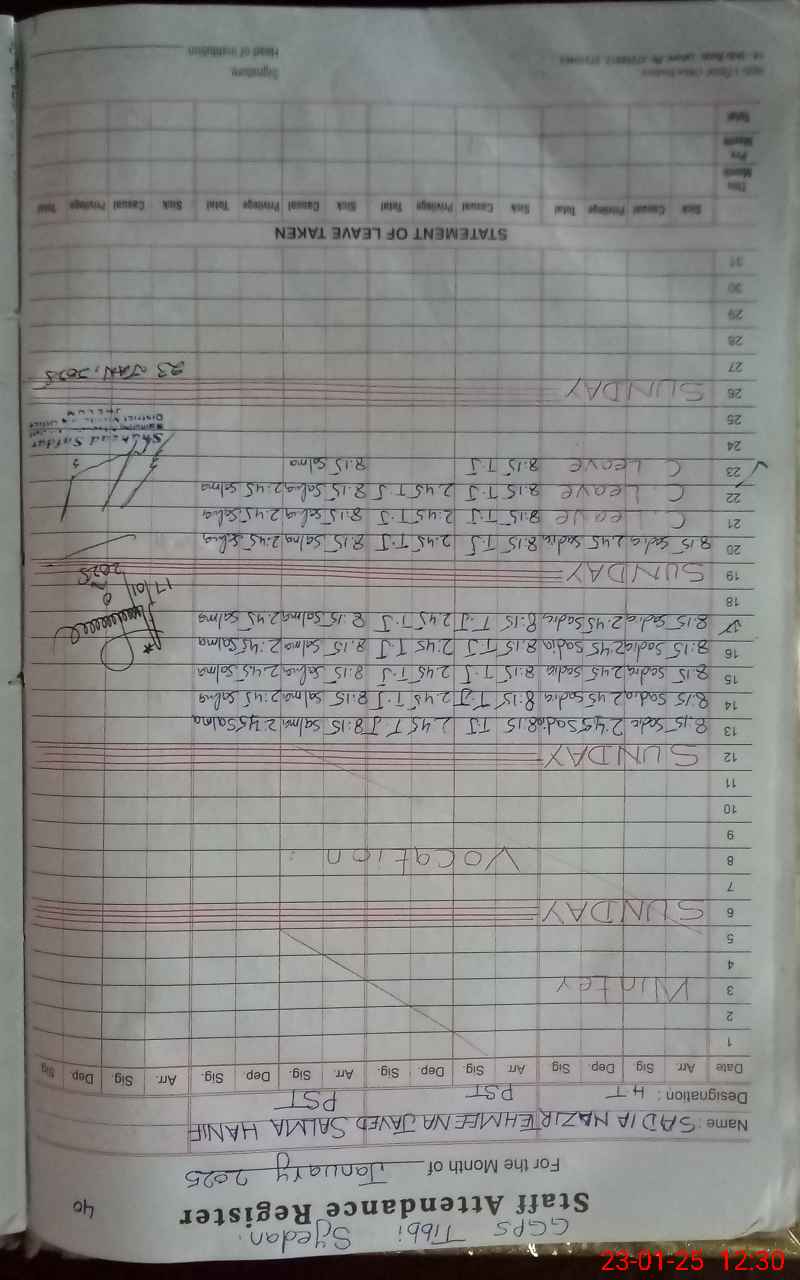 GGPS Tibbi Syedan.
Staff Attendance Register 40
For the Month of January 2025
Name: SADIA NAZIR TEHMEENA JAVED SALMA HANIF
Designation: HT PST PST
Date Arr. Sig. Dep. Sig. Arr. Sig. Dep. Sig. Arr. Sig. Dep. Sig. Arr. Sig. Dep. Sig.
1
2
3 Winter
4
5
6 SUNDAY
7
8 Vocation :
9
10
11
12 SUNDAY
13 8:15 Sadia 2:45 Sadia 8:15 T.J 2:45 T.J 8:15 Salma 2:45 Salma
14 8:15 Sadia 2:45 Sadia 8:15 T.J 2:45 T.J 8:15 Salma 2:45 Salma
15 8:15 Sadia 2:45 Sadia 8:15 T.J 2:45 T.J 8:15 Salma 2:45 Salma
16 8:15 Sadia 2:45 Sadia 8:15 T.J 2:45 T.J 8:15 Salma 2:45 Salma
8:15 Sadia 2:45 Sadia 8:15 T.J 2:45 T.J 8:15 Salma 2:45 Salma
17/01
2025
18
19 SUNDAY
20 8:15 Sadia 2:45 Sadia 8:15 T.J 2:45 T.J 8:15 Salma 2:45 Salma
21 C. Leave 8:15 T.J 2:45 T.J 8:15 Salma 2:45 Salma
22 C. Leave 8:15 T.J 2:45 T.J 8:15 Salma 2:45 Salma
23 C Leave 8:15 T.J 8:15 Salma
24
Safdar
District
25
26 SUNDAY
23 JAN, 2025
27
28
29
30
31
STATEMENT OF LEAVE TAKEN
Sick Casual Privilege Total Sick Casual Privilege Total Sick Casual Privilege Total Sick Casual Privilege Total
This Month
Pre Month
Total
Signature
Head of Institution
23-01-25 12:30